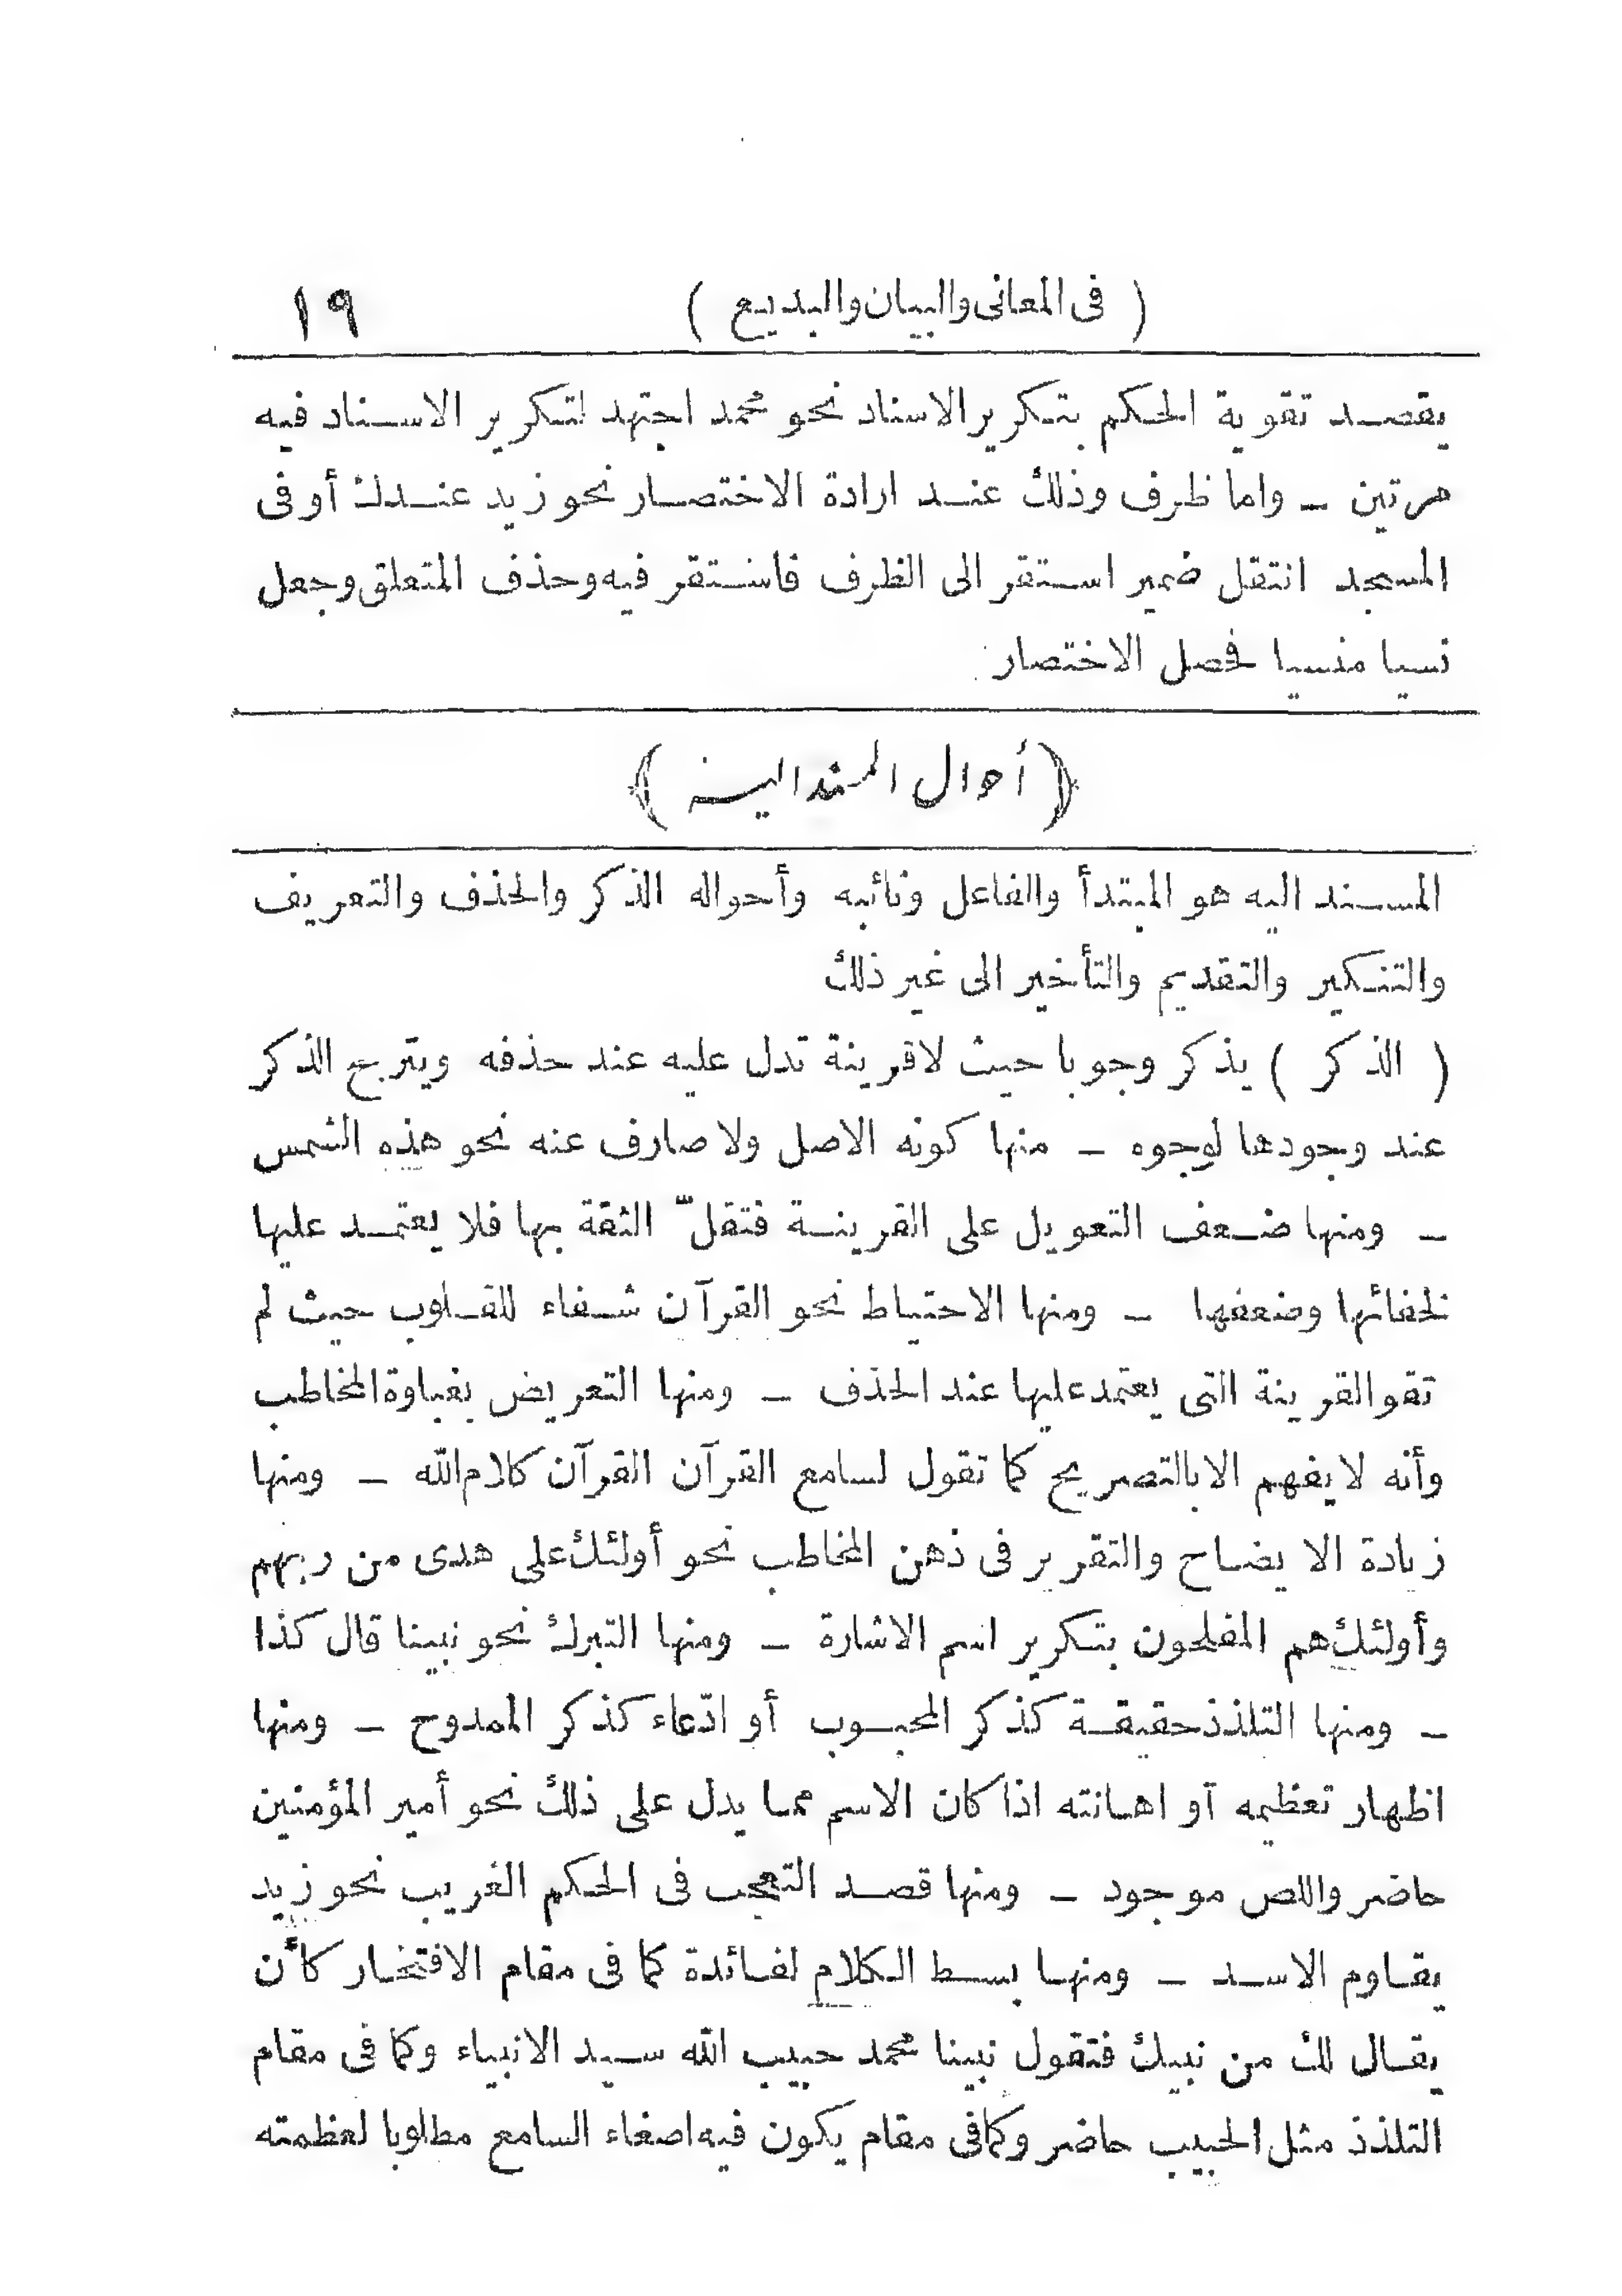 ( فى المعانى والبيان والبديع ) ١٩
يقصد تقوية الحكم بتكرير الاسناد نحو محمد اجتهد لتكرير الاسناد فيه
مرتين ـ واما ظرف وذلك عند ارادة الاختصار نحو زيد عندك أو فى
المسجد انتقل ضمير استقر الى الظرف فاستقر فيه وحذف المتعلق وجعل
نسيا منسيا فحصل الاختصار
﴿ أحوال المسند اليه ﴾
المسند اليه هو المبتدأ والفاعل ونائبه وأحواله الذكر والحذف والتعريف
والتنكير والتقديم والتأخير الى غير ذلك
( الذكر ) يذكر وجوبا حيث لاقرينة تدل عليه عند حذفه ويترجح الذكر
عند وجودها لوجوه ـ منها كونه الاصل ولا صارف عنه نحو هذه الشمس
ـ ومنها ضعف التعويل على القرينة فتقلّ الثقة بها فلا يعتمد عليها
لخفائها وضعفها ـ ومنها الاحتياط نحو القرآن شفاء للقلوب حيث لم
تقو القرينة التى يعتمد عليها عند الحذف ـ ومنها التعريض بغباوة المخاطب
وأنه لايفهم الا بالتصريح كما تقول لسامع القرآن القرآن كلام الله ـ ومنها
زيادة الايضاح والتقرير فى ذهن المخاطب نحو أولئك على هدى من ربهم
وأولئك هم المفلحون بتكرير اسم الاشارة ـ ومنها التبرك نحو نبينا قال كذا
ـ ومنها التلذذ حقيقة كذكر المحبوب أو ادّعاء كذكر الممدوح ـ ومنها
اظهار تعظيمه أو اهانته اذا كان الاسم مما يدل على ذلك نحو أمير المؤمنين
حاضر واللص موجود ـ ومنها قصد التعجب فى الحكم الغريب نحو زيد
يقاوم الاسد ـ ومنها بسط الكلام لفائدة كما فى مقام الافتخار كأن
يقال لك من نبيك فتقول نبينا محمد حبيب الله سيد الانبياء وكما فى مقام
التلذذ مثل الحبيب حاضر وكما فى مقام يكون فيه اصغاء السامع مطلوبا لعظمته